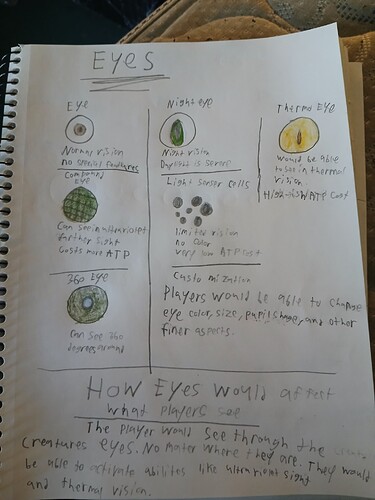 EYES
Eye
Normal vision
no special feautures
Compound
Eye
Can see in ultraviolet
farther sight
Costs more ATP
360 Eye
Can see 360
degrees around
Night eye
Night vision
Daylight is
Light senser cells
limited vision
no color
very low ATP cost
Customization
Players would be able to change
eye color, size, pupil shape, and other
finer aspects.
Thermo EYE
would be able
to see in thermal
vision
High ATP Cost
How Eyes Would affect
what players see
The player would see through the
Creatures eyes. No mater where they are. They would
be able to activate abilites like ultraviolet sight
and thermal vision.